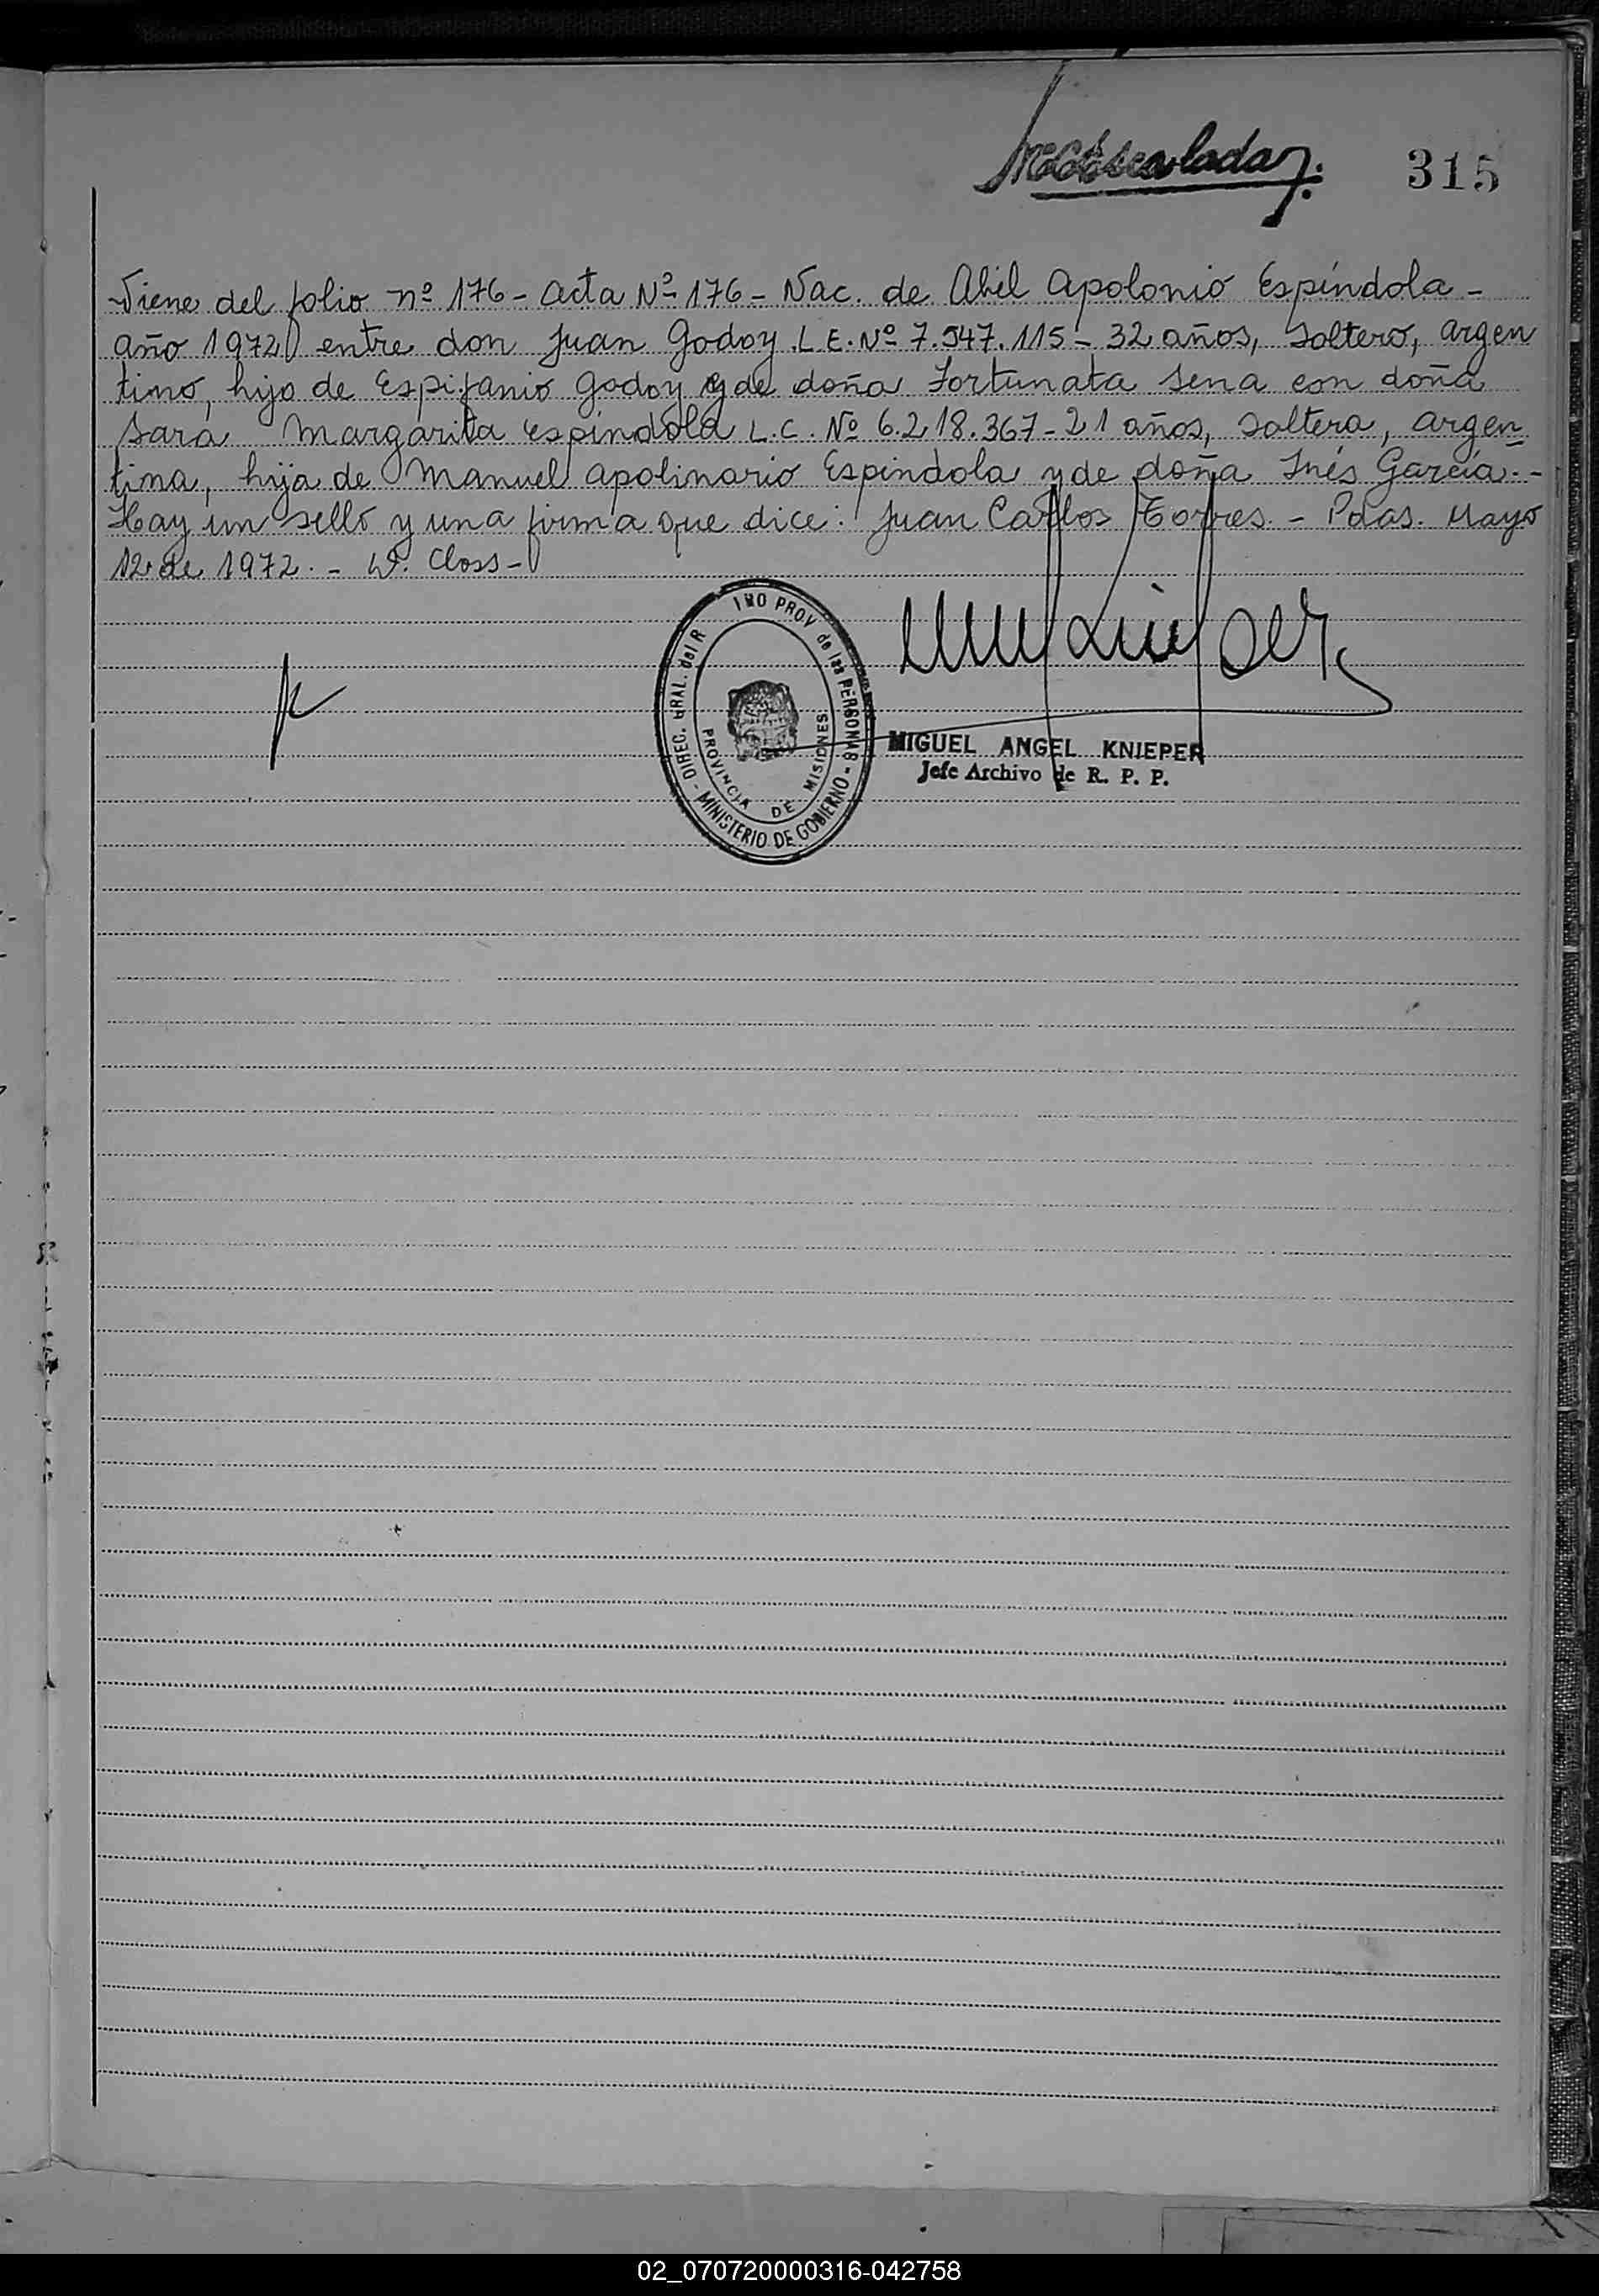 315
Viene del folio nº 176 - Acta Nº 176 - Nac. de Abil Apolonio Espíndola -
año 1972 entre don Juan Godoy L.E. Nº 7.547.115 - 32 años, soltero, argen
tino, hijo de Espifanio Godoy y de doña Fortunata Sena con doña
Sara Margarita Espíndola L.C. Nº 6.218.367 - 21 años, soltera, argen
tina, hija de Manuel Apolinario Espindola y de doña Inés García. -
Hay un sello y una firma que dice: Juan Carlos Torres. - Pdas. Mayo
12 de 1972. - W. Closs -
DIREC. GRAL. del R IRO PROV de las PERSONAS - MINISTERIO DE GOBIERNO -
PROVINCIA DE MISIONES
MIGUEL ANGEL KNIEPER
Jefe Archivo de R. P. P.
02_070720000316-042758